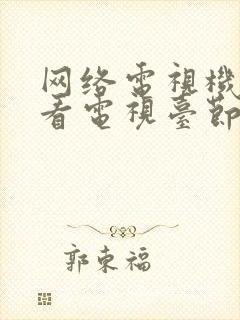 网络電視機
看電視臺節
郭東福